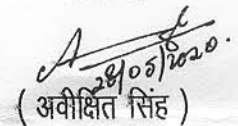 28/05/2020.
( अवीक्षित सिंह )